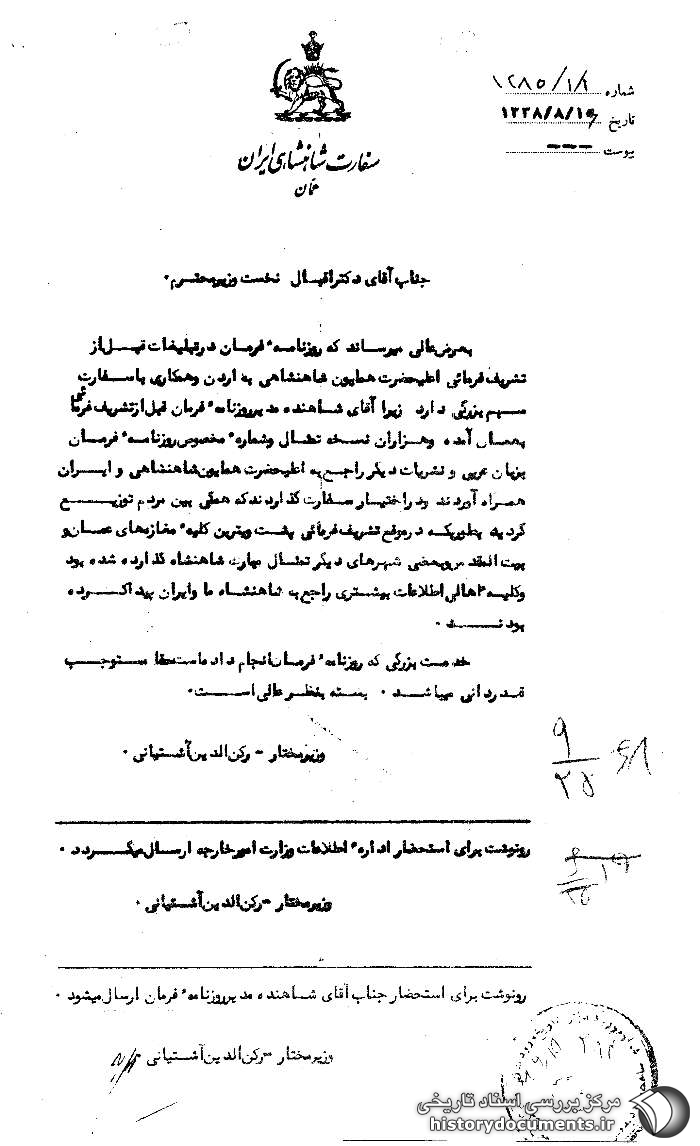 شماره ۱۲۸۵/۱/۲
تاریخ ۱۳۳۸/۸/۱۶
پیوست ---
سفارت شاهنشاهی ایران
عمان
جناب آقای دکتر اقبال نخست وزیر محترم۰
بعرض عالی میرساند که روزنامهٔ فرمان در تبلیغات قبل از
تشریف فرمائی اعلیحضرت همایون شاهنشاهی به اردن وهمکاری با سفارت
سهم بزرگی دارد زیرا آقای شاهنده مدیر روزنامهٔ فرمان قبل از تشریف فرمائی
بعمان آمده وهزاران نسخه تمثال وشمارهٔ مخصوص روزنامهٔ فرمان
بزبان عربی و نشریات دیگر راجع به اعلیحضرت همایون شاهنشاهی و ایران
همراه آوردند ودر اختیار سفارت گذاردند که همگی بین مردم توزیع
گردید بطوریکه در موقع تشریف فرمائی پشت ویترین کلیهٔ مغازه‌های عمان و
بیت المقدس وبعضی شهرهای دیگر تمثال مبارک شاهنشاه گذارده شده بود
وکلیه اهالی اطلاعات بیشتری راجع به شاهنشاه ما وایران پیدا کرده
بودند ۰
خدمت بزرگی که روزنامهٔ فرمان انجام داده است حقا مستوجب
قدردانی میباشد ۰ بسته بنظر عالی است۰
وزیرمختار - رکن‌الدین آشتیانی ۰
۹
۲۵
رونوشت برای استحضار ادارهٔ اطلاعات وزارت امور خارجه ارسال میگردد ۰
وزیرمختار - رکن‌الدین آشتیانی ۰
رونوشت برای استحضار جناب آقای شاهنده مدیر روزنامهٔ فرمان ارسال میشود ۰
وزیرمختار - رکن‌الدین آشتیانی
مرکز بررسی اسناد تاریخی
historydocuments.ir